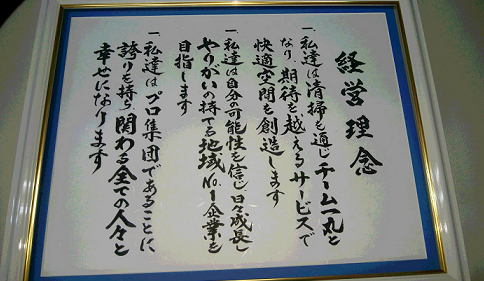 経営理念
一、私達は清掃を通じチーム一丸と
なり、期待を越えるサービスで
快適空間を創造します
一、私達は自分の可能性を信じ日々成長し
やりがいの持てる地域No.1企業を
目指します
一、私達はプロ集団であることに
誇りを持ち、関わる全ての人々と
幸せになります